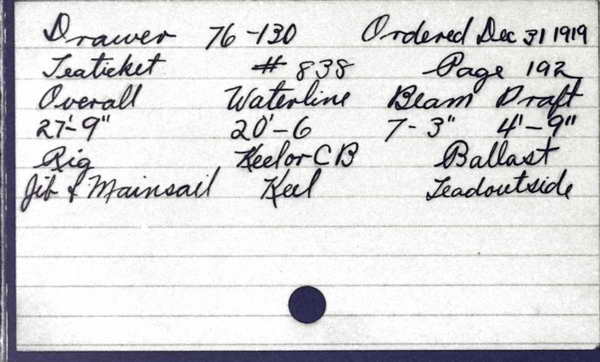 Drawer 76-130 Ordered Dec 31 1919
Teaticket # 838 Page 192
Overall Waterline Beam Draft
27'-9" 20'-6 7-3" 4'-9"
Rig Keel or C B Ballast
Jib & Mainsail Keel Lead outside